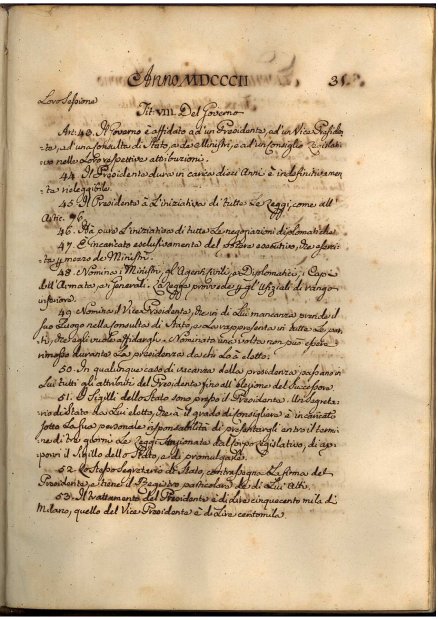 Anno MDCCCII 31.
Loro Sessione
Tit. VIII. Del Governo
Art. 43. Il Governo è affidato ad un Presidente, ad un Vice Presiden-
te, ad una Consulta di Stato, a de Ministri, e ad un Consiglio Legislati-
vo nelle Loro respettive attribuzioni.
44. Il Presidente dura in carica dieci Anni è indefinitamen-
te rieleggibile.
45. Il Presidente à L'iniziativa di tutte Le Leggi, come all'
Artic. 76.
46. Hà pure L'iniziativa di tutte Le negoziazioni diplomatiche.
47. È incaricato esclusivamente del potere esecutivo, che eserci-
ta p mezzo de Ministri.
48. Nomina i Ministri, gl'Agenti Civili, e Diplomatici, i Capi
dell'Armata, e i Generali. La Legge provvede p gl'Ufiziali di rango
inferiore.
49. Nomina il Vice Presidente, che in di Lui mancanza prende il
suo Luogo nella Consulta di Stato, e Lo rappresenta in tutte Le par-
ti, che egli vuole affidargli. Nominato una volta non può essere
rimosso durante La presidenza da chi Lo à eletto.
50. In qualunque caso di vacanza della presidenza passano in
Lui tutti gli attributi del Presidente fino all'elezione del Successore
51. I Sigilli dello Stato sono presso il Presidente. Un Segreta-
rio di Stato da Lui eletto, che à il grado di Consigliere è incaricato
sotto La sua personale responsabilità di presentargli entro il termi-
ne di tre giorni Le Leggi stazionate dal Corpo Legislativo, di ap-
porvi il Sigillo dello Stato, e di promulgarle.
52. Lo stesso Segretario di Stato, contrasegna La firma del
Presidente, e tiene il Registro particolare de di Lui Atti.
53. Il trattamento del Presidente è di Lire cinquecento mila di
Milano, quello del Vice Presidente è di Lire centomila.